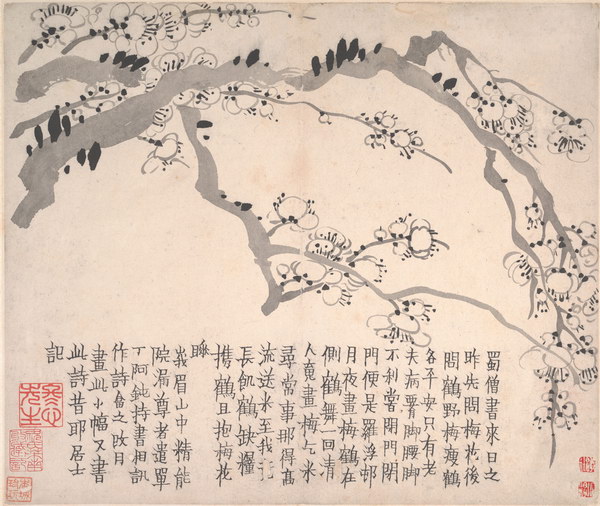 蜀僧書來日之
昨先問梅花後
問鶴野梅瘦鶴
各平安只有老
夫病腰脚腰脚
不利常閉門閉
門便是羅浮邨
月夜畫梅鶴在
側鶴舞一回清
人魂畫梅乞米
尋常事那得髙
流送米至我
長飢鶴缺糧
携鶴且抱梅花
睡
峩眉山中精能
院漏尊者遣單
丁阿鈍持書相訊
作詩畣之改月
畫此小幅又書
此詩昔耶居士
記
冬心先生